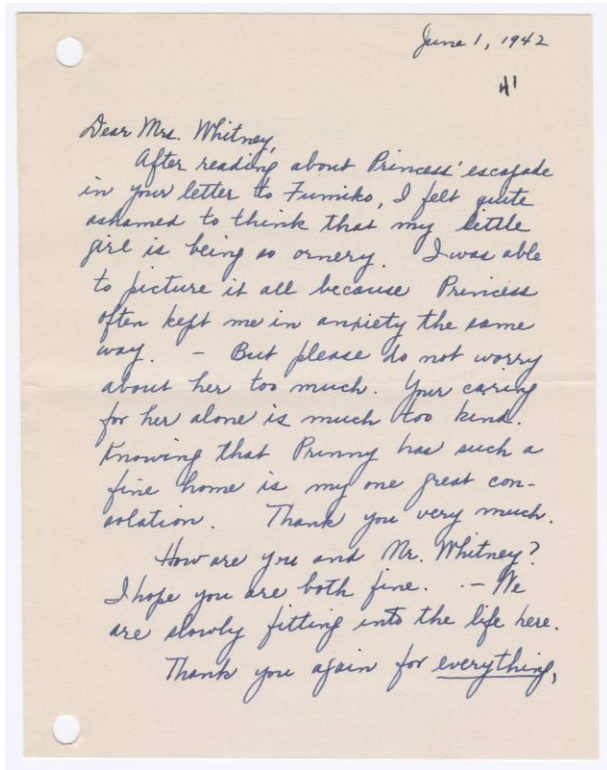 June 1, 1942
41
Dear Mrs. Whitney,
After reading about Princess' escapade
in your letter to Fumiko, I felt quite
ashamed to think that my little
girl is being so ornery. I was able
to picture it all because Princess
often kept me in anxiety the same
way. – But please do not worry
about her too much. Your caring
for her alone is much too kind.
Knowing that Prinny has such a
fine home is my one great con-
solation. Thank you very much.
How are you and Mr. Whitney?
I hope you are both fine. – We
are slowly fitting into the life here.
Thank you again for everything,